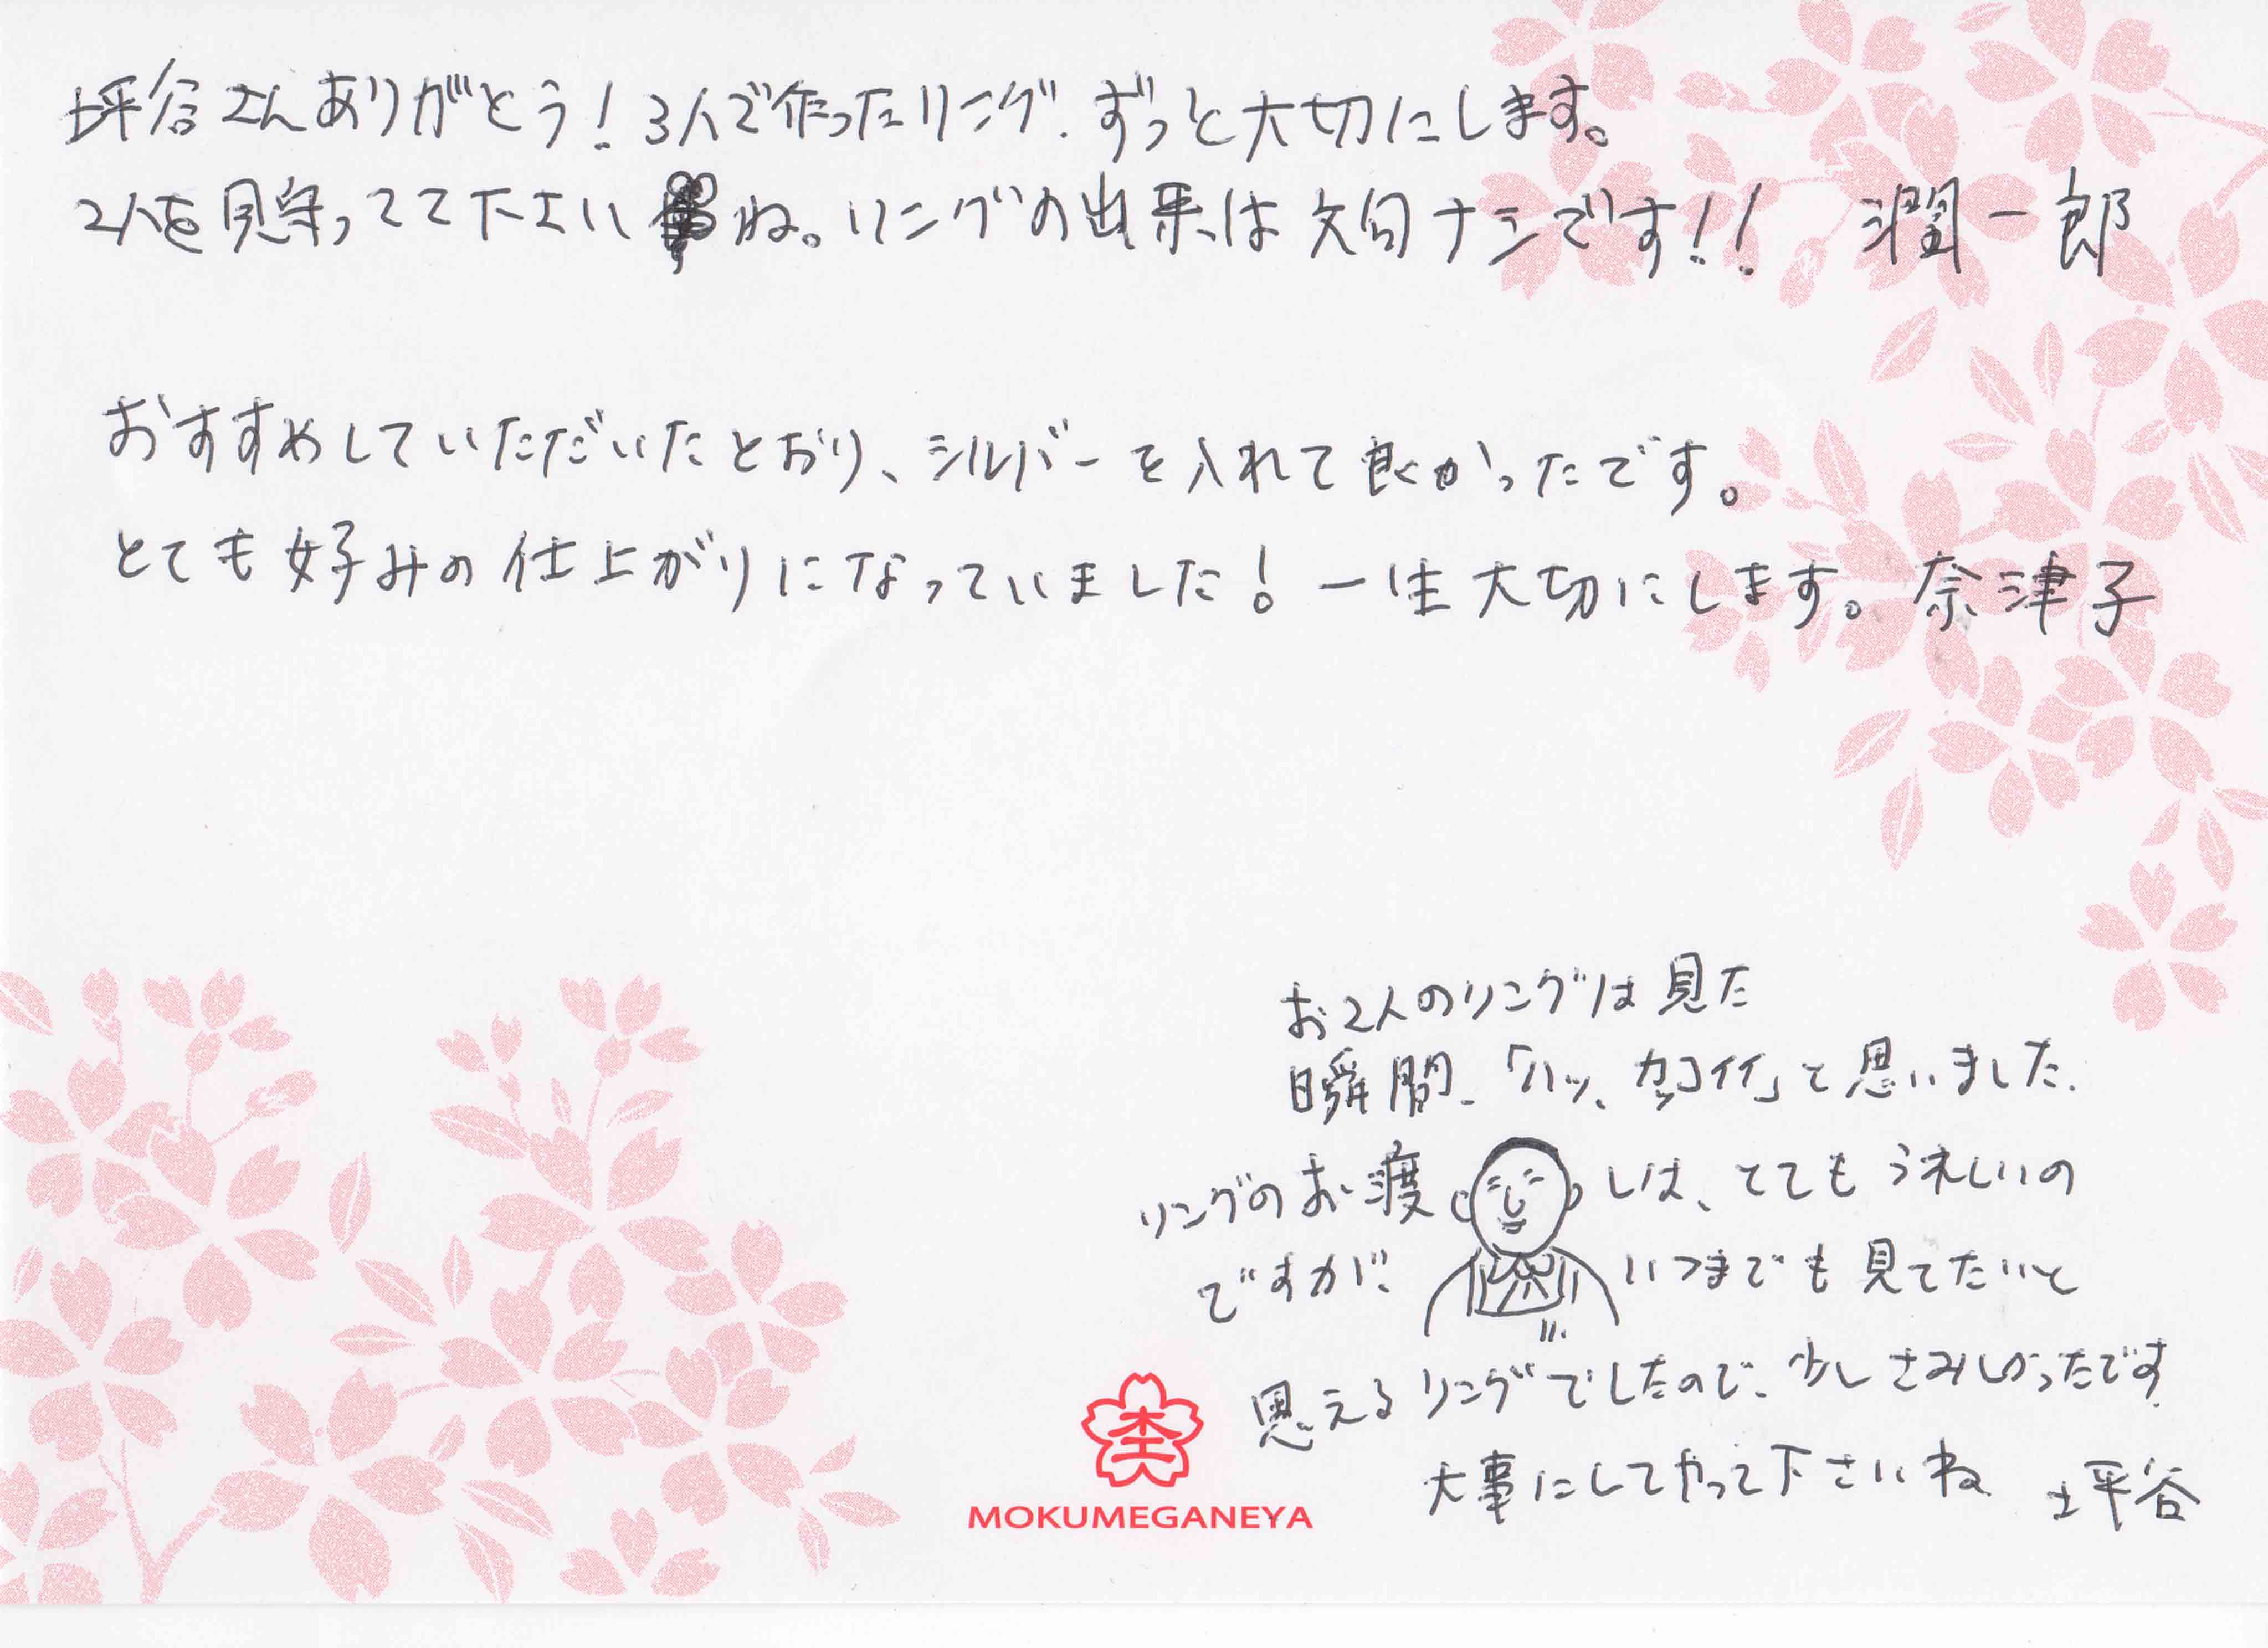 坪谷さんありがとう！3人で作ったリング、ずっと大切にします。
2人を見守ってて下さいね。リングの出来は文句ナシです！！ 潤一郎
おすすめしていただいたとおり、シルバーを入れて良かったです。
とても好みの仕上がりになっていました！一生大切にします。奈津子
お2人のリングは見た
瞬間、「ハッ、カッコイイ」と思いました.
リングのお渡しは、とてもうれしいの
ですが、いつまでも見てたいと
思えるリングでしたので、少しさみしかったです.
大事にしてやって下さいね 坪谷
杢
MOKUMEGANEYA